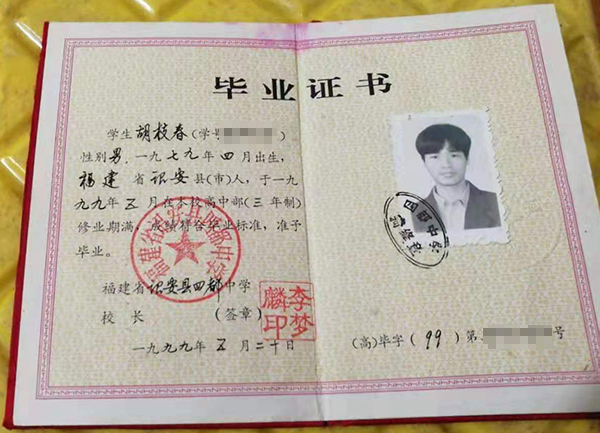 毕业证书
学生胡枝春(学号 )
性别男,一九七九年四月出生,
福建省诏安县(市)人,于一九
九九年五月在本校高中部(三年制)
修业期满,成绩符合毕业标准,准予
毕业。
福建省诏安县四都中学
校长 (签章)
李梦麟印
一九九九年五月二十日
(高)毕字(99)第 号